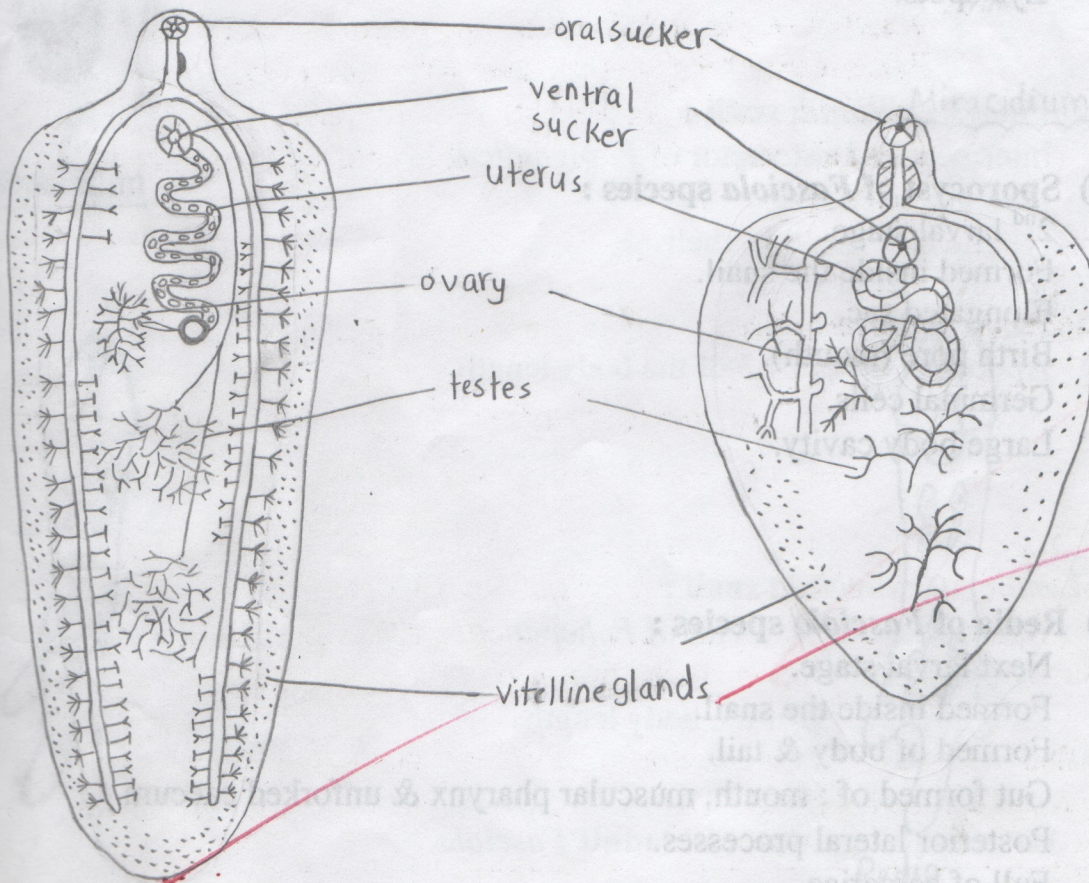 oral sucker
ventral
sucker
uterus
ovary
testes
vitelline glands